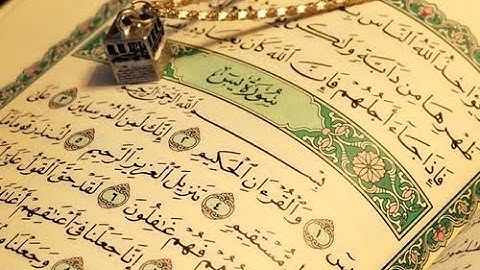 يُؤَاخِذُ ٱللَّهُ ٱلنَّاسَ
ظَهْرِهَا مِن دَآبَّةٍ وَلَٰكِن
فَإِذَا جَآءَ أَجَلُهُمْ فَإِنَّ ٱللَّهَ كَانَ
سُورَةُ يسٓ
بِسْمِ ٱللَّهِ ٱلرَّحْمَٰنِ ٱلرَّحِيمِ
١ وَٱلْقُرْءَانِ ٱلْحَكِيمِ ٢ إِنَّكَ لَمِنَ ٱلْمُرْسَلِينَ ٣ عَلَىٰ
مُّسْتَقِيمٍ ٤ تَنزِيلَ ٱلْعَزِيزِ ٱلرَّحِيمِ ٥ لِتُنذِرَ قَوْمًا
فَهُمْ غَٰفِلُونَ ٦ لَقَدْ حَقَّ ٱلْقَوْلُ عَلَىٰٓ
إِنَّا جَعَلْنَا فِىٓ أَعْنَٰقِهِمْ أَغْلَٰلًا
وَجَعَلْنَا